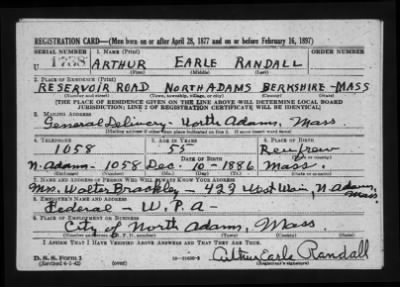 REGISTRATION CARD—(Men born on or after April 28, 1877 and on or before February 16, 1897)
SERIAL NUMBER 1. NAME (Print) ORDER NUMBER
U 1758 ARTHUR EARLE RANDALL
(First) (Middle) (Last)
2. PLACE OF RESIDENCE (Print)
RESERVOIR ROAD NORTH ADAMS BERKSHIRE - MASS
(Number and street) (Town, township, village, or city) (County) (State)
[THE PLACE OF RESIDENCE GIVEN ON THE LINE ABOVE WILL DETERMINE LOCAL BOARD
JURISDICTION; LINE 2 OF REGISTRATION CERTIFICATE WILL BE IDENTICAL]
3. MAILING ADDRESS
General Delivery - North Adams, Mass
[Mailing address if other than place indicated on line 2. If same insert word same]
4. TELEPHONE 5. AGE IN YEARS 6. PLACE OF BIRTH
1058 55 Renfrew
DATE OF BIRTH
N. Adams - 1058 Dec. 10 - 1886 Mass.
(Exchange) (Number) (Mo.) (Day) (Yr.) (State or country)
7. NAME AND ADDRESS OF PERSON WHO WILL ALWAYS KNOW YOUR ADDRESS
Mrs. Walter - 423 West Main, N. Adams,
Mass.
8. EMPLOYER'S NAME AND ADDRESS
Federal - W. P. A -
9. PLACE OF EMPLOYMENT OR BUSINESS
City of North Adams, Mass.
(Number and street or R. F. D. number) (Town) (County) (State)
I AFFIRM THAT I HAVE VERIFIED ABOVE ANSWERS AND THAT THEY ARE TRUE.
D. S. S. Form 1
(Revised 4-1-42) (over) Arthur Earle Randall
(Registrant's signature)